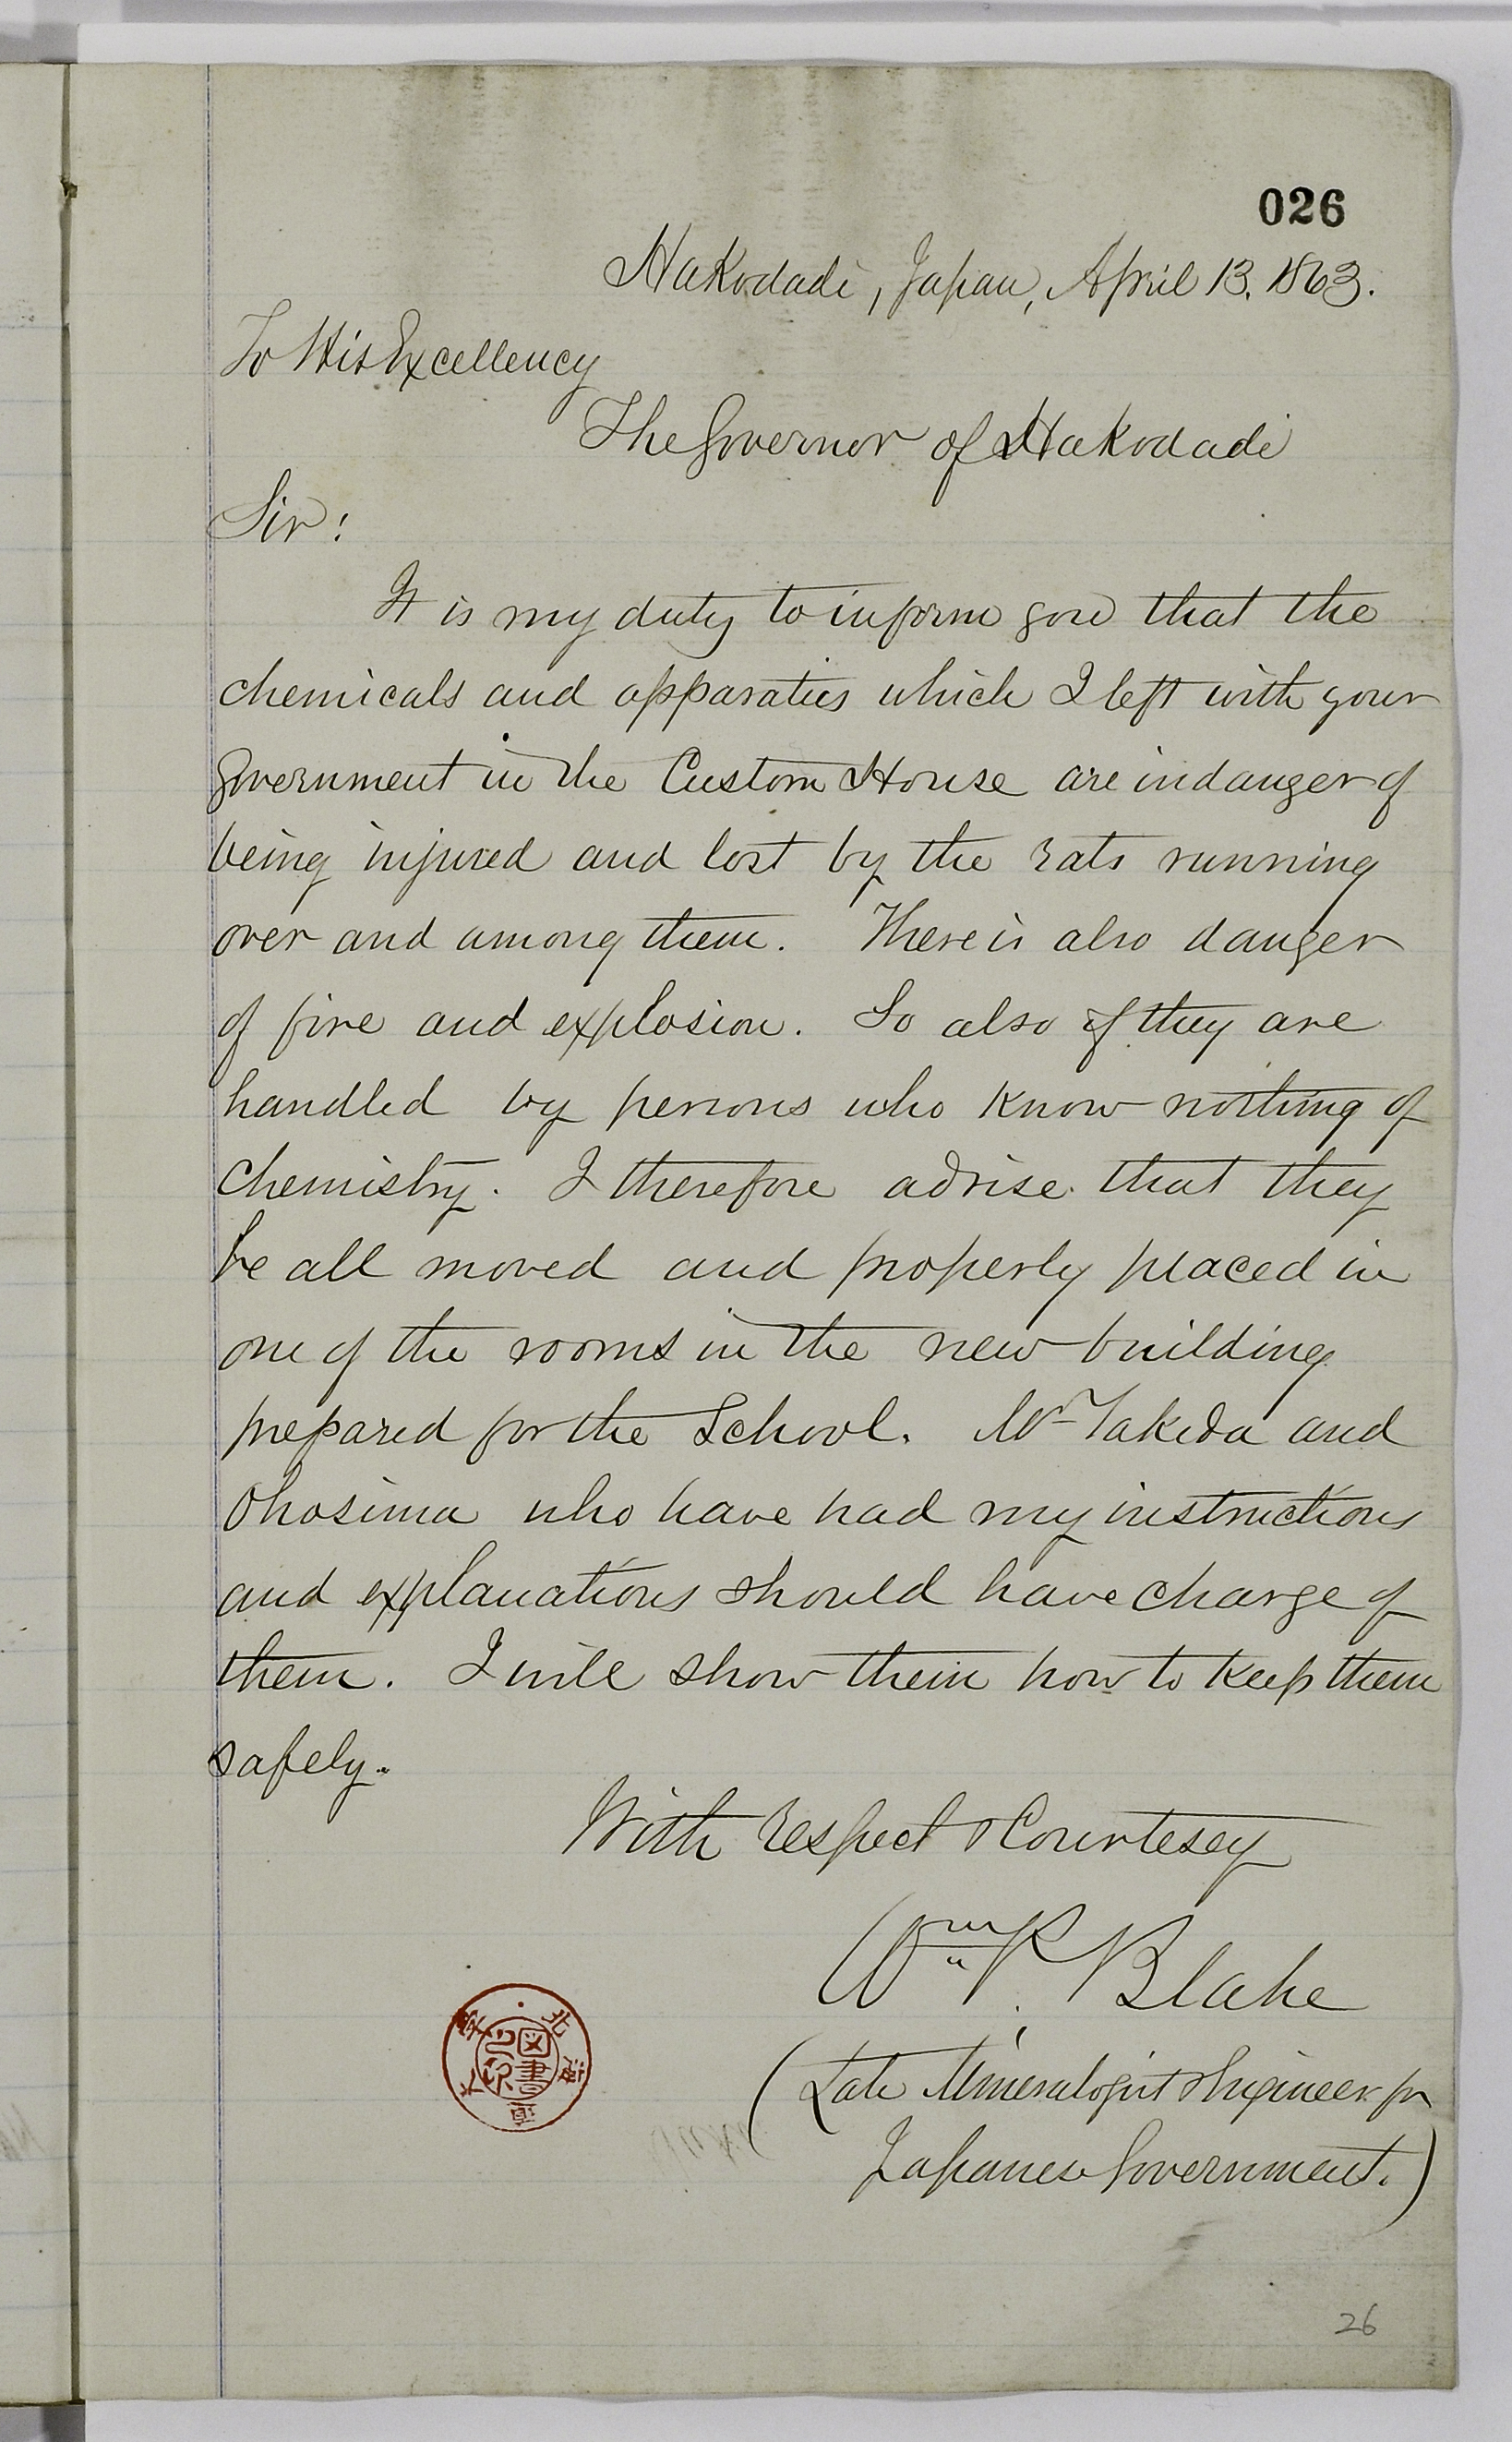 026
Hakodadi, Japan, April 13. 1863.
To His Excellency
The Governor of Hakodadi
Sir:
It is my duty to inform you that the
chemicals and apparatus which I left with your
Government in the Custom House are in danger of
being injured and lost by the rats running
over and among them. There is also danger
of fire and explosion. So also if they are
handled by persons who know nothing of
chemistry. I therefore advise that they
be all moved and properly placed in
one of the rooms in the new building
prepared for the School. Mr Takeda and
Ohosima who have had my instructions
and explanations should have charge of
them. I will show them how to keep them
safely.
With respect & Courtesey
Wm P. Blake
(Late Mineralogist & Engineer for
Japanese Government.)
北海道大學
圖書之印
26